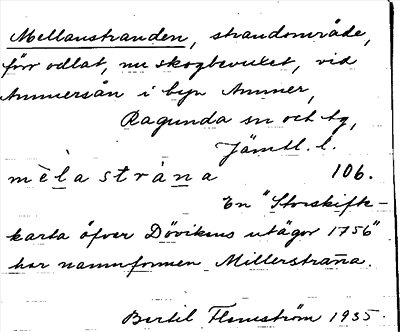 Mellanstranden, strandområde,
förr odlat, nu skogbevuxet, vid
Ammersån i byn Ammer,
Ragunda sn och tg,
Jämtl. l.
mèla stràna 106.
En "Storskifts-
karta öfver Dövikens utägor 1756"
har namnformen Millerstraña.
Bertil Flemström 1935.